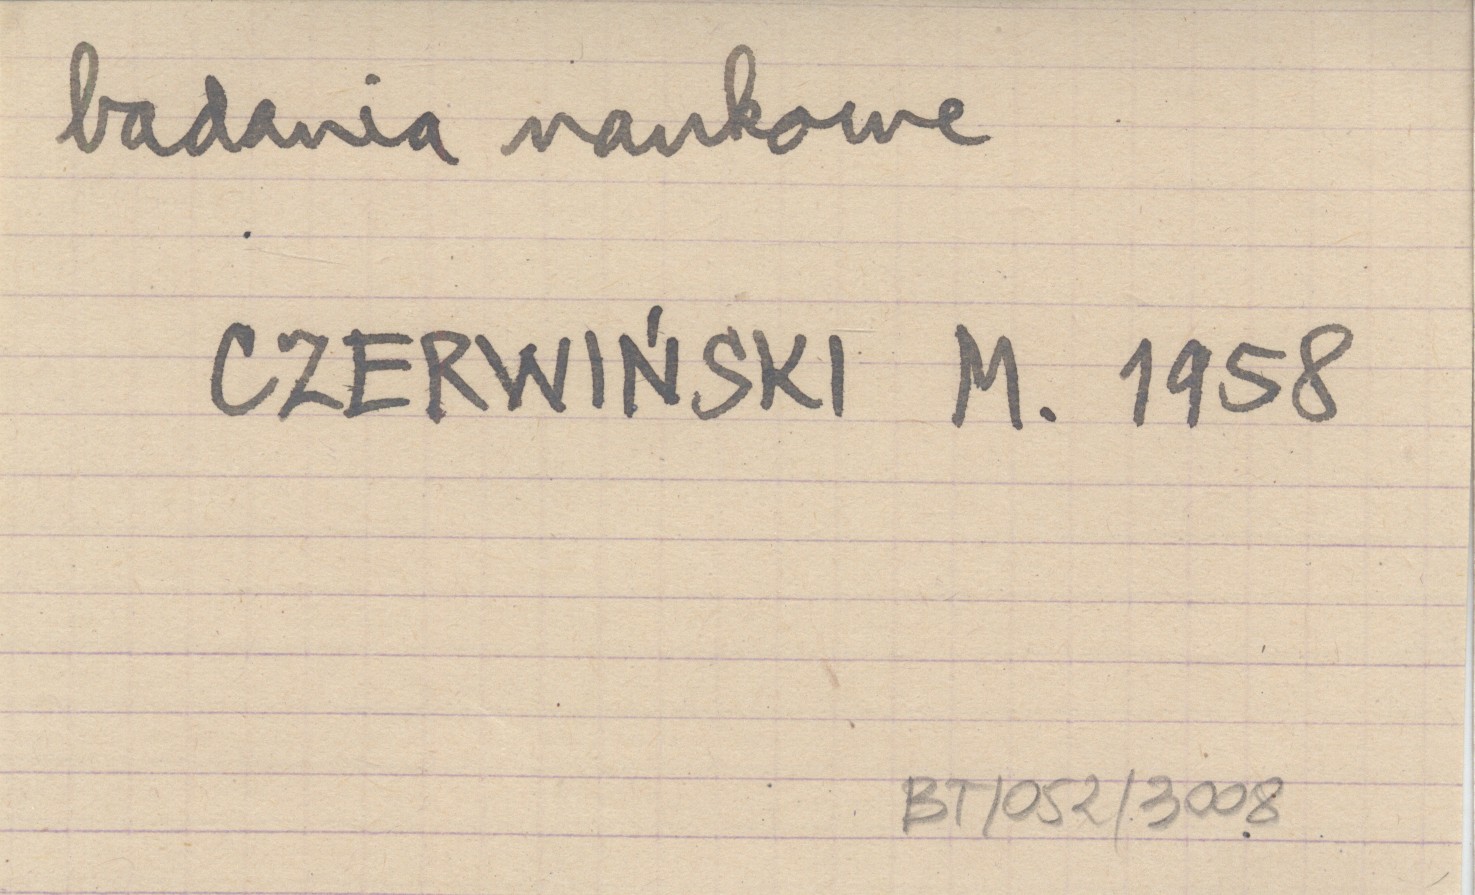 badania naukowe
CZERWIŃSKI M. 1958
BT/052/3008